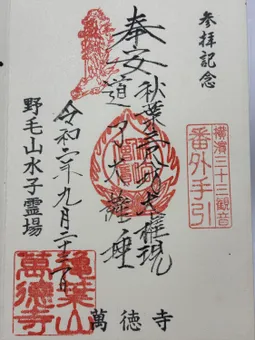 参拝記念
横濱三十三観音
番外手引
奉安
秋葉三尺坊大権現
道了大薩埵
令和二年九月二十二日
野毛山水子霊場
萬徳寺
萬徳寺